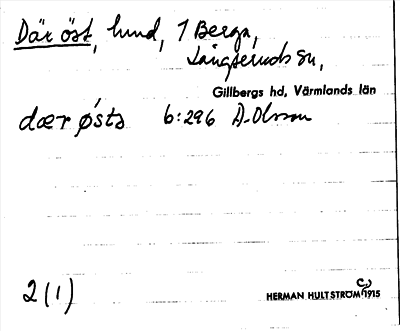 Där öst, hmd, 1 Berga,
Långseruds sn,
Gillbergs hd, Värmlands län
dær østs b:296 A. Olsson
2(1)
HERMAN HULTSTRÖM 1915